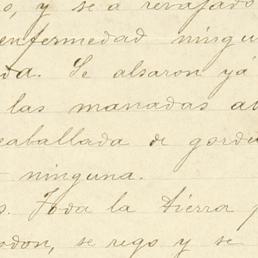 o, y se a revajado
enfermedad ningu
da. Se alsaron yá
las manadas a
caballada de gordu
ninguna.
s. Toda la tierra p
odon, se rego y se